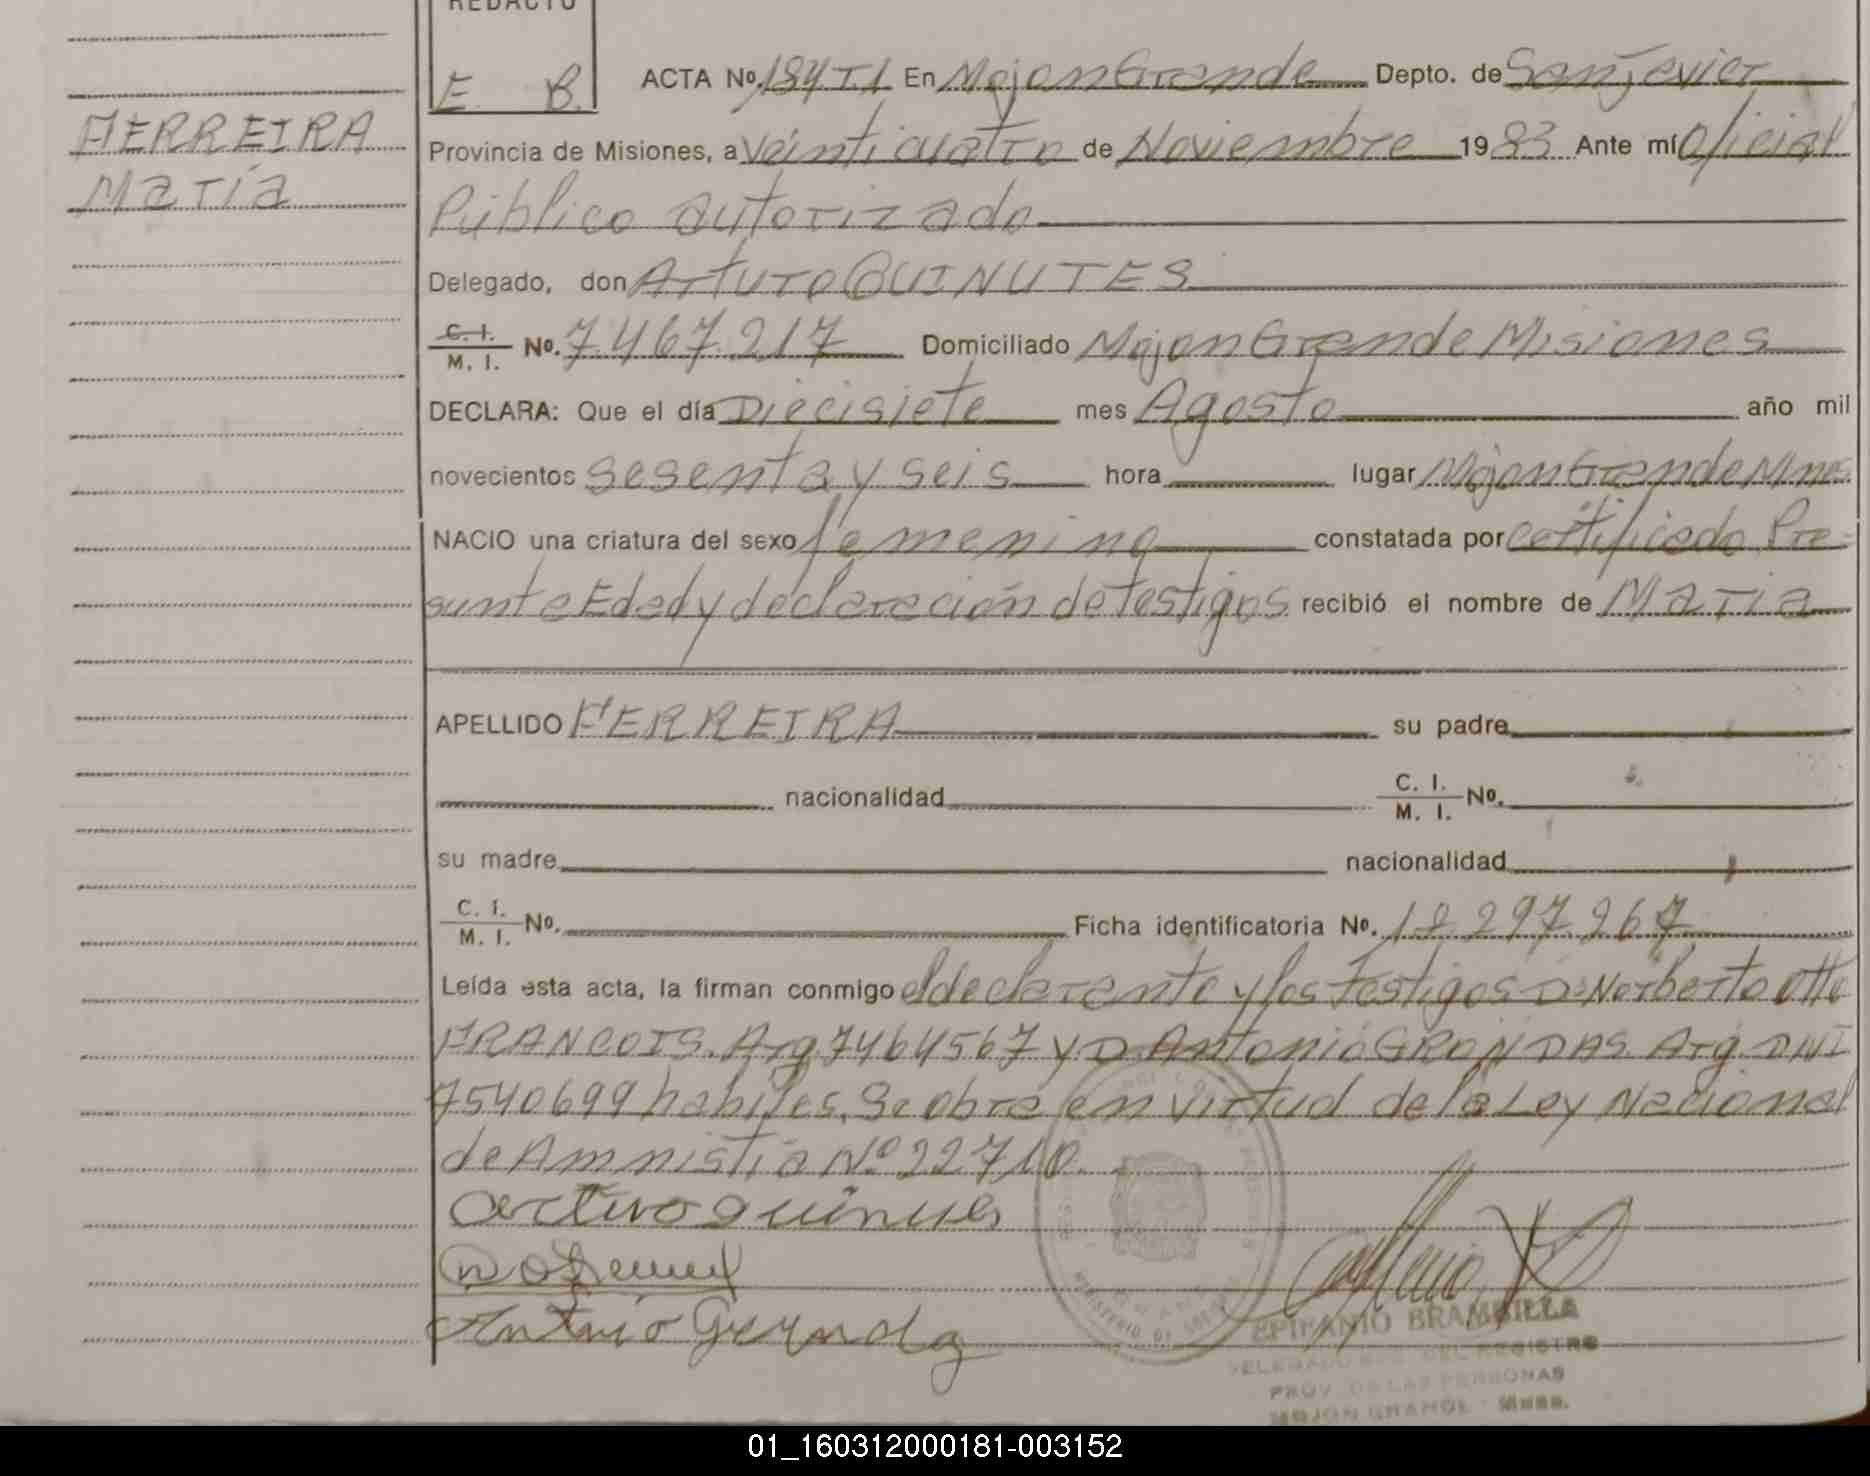 REDACTO
E. B.
FERREIRA
María
ACTA Nº 184 T1 En Mojon Grande Depto. de San Javier
Provincia de Misiones, a Veinticuatro de Noviembre 1983 Ante mí Oficial
Público autorizado
Delegado, don Arturo QUINUTES
C. I. / M. I. Nº. 7.467.217 Domiciliado Mojon Grande Misiones
DECLARA: Que el día Diecisiete mes Agosto año mil
novecientos sesenta y seis hora lugar Mojon Grande Mnes.
NACIO una criatura del sexo femenino constatada por certificado Pre-
sunta Edad y declaración de Testigos recibió el nombre de María
APELLIDO FERREIRA su padre
nacionalidad C. I. / M. I. Nº.
su madre nacionalidad
C. I. / M. I. Nº. Ficha identificatoria Nº. 18.297.967
Leída esta acta, la firman conmigo el declarante y los Testigos D: Norberto Otto
FRANCOIS. Arg. 7464567 y D. Antonio GRONDAS. Arg. DNI
7540699 habiles. Se obra en virtud de la Ley Nacional
de Amnistia Nº 22710.
EPIFANIO BRAMBILLA
DELEGADO DEL REGISTRO
PROV. DE LAS PERSONAS
MOJON GRANDE - Mnes.
01_160312000181-003152